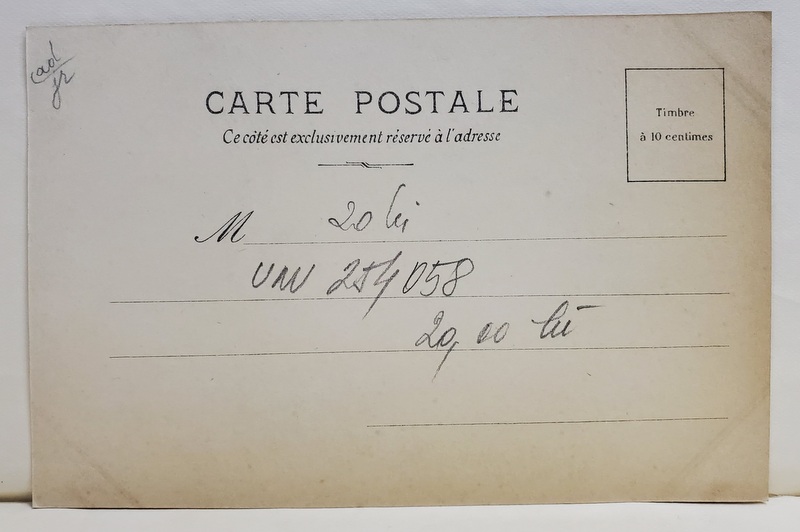 CARTE POSTALE
Ce côté est exclusivement réservé à l'adresse
Timbre
à 10 centimes
M 20 lei
254058
20,00 lei